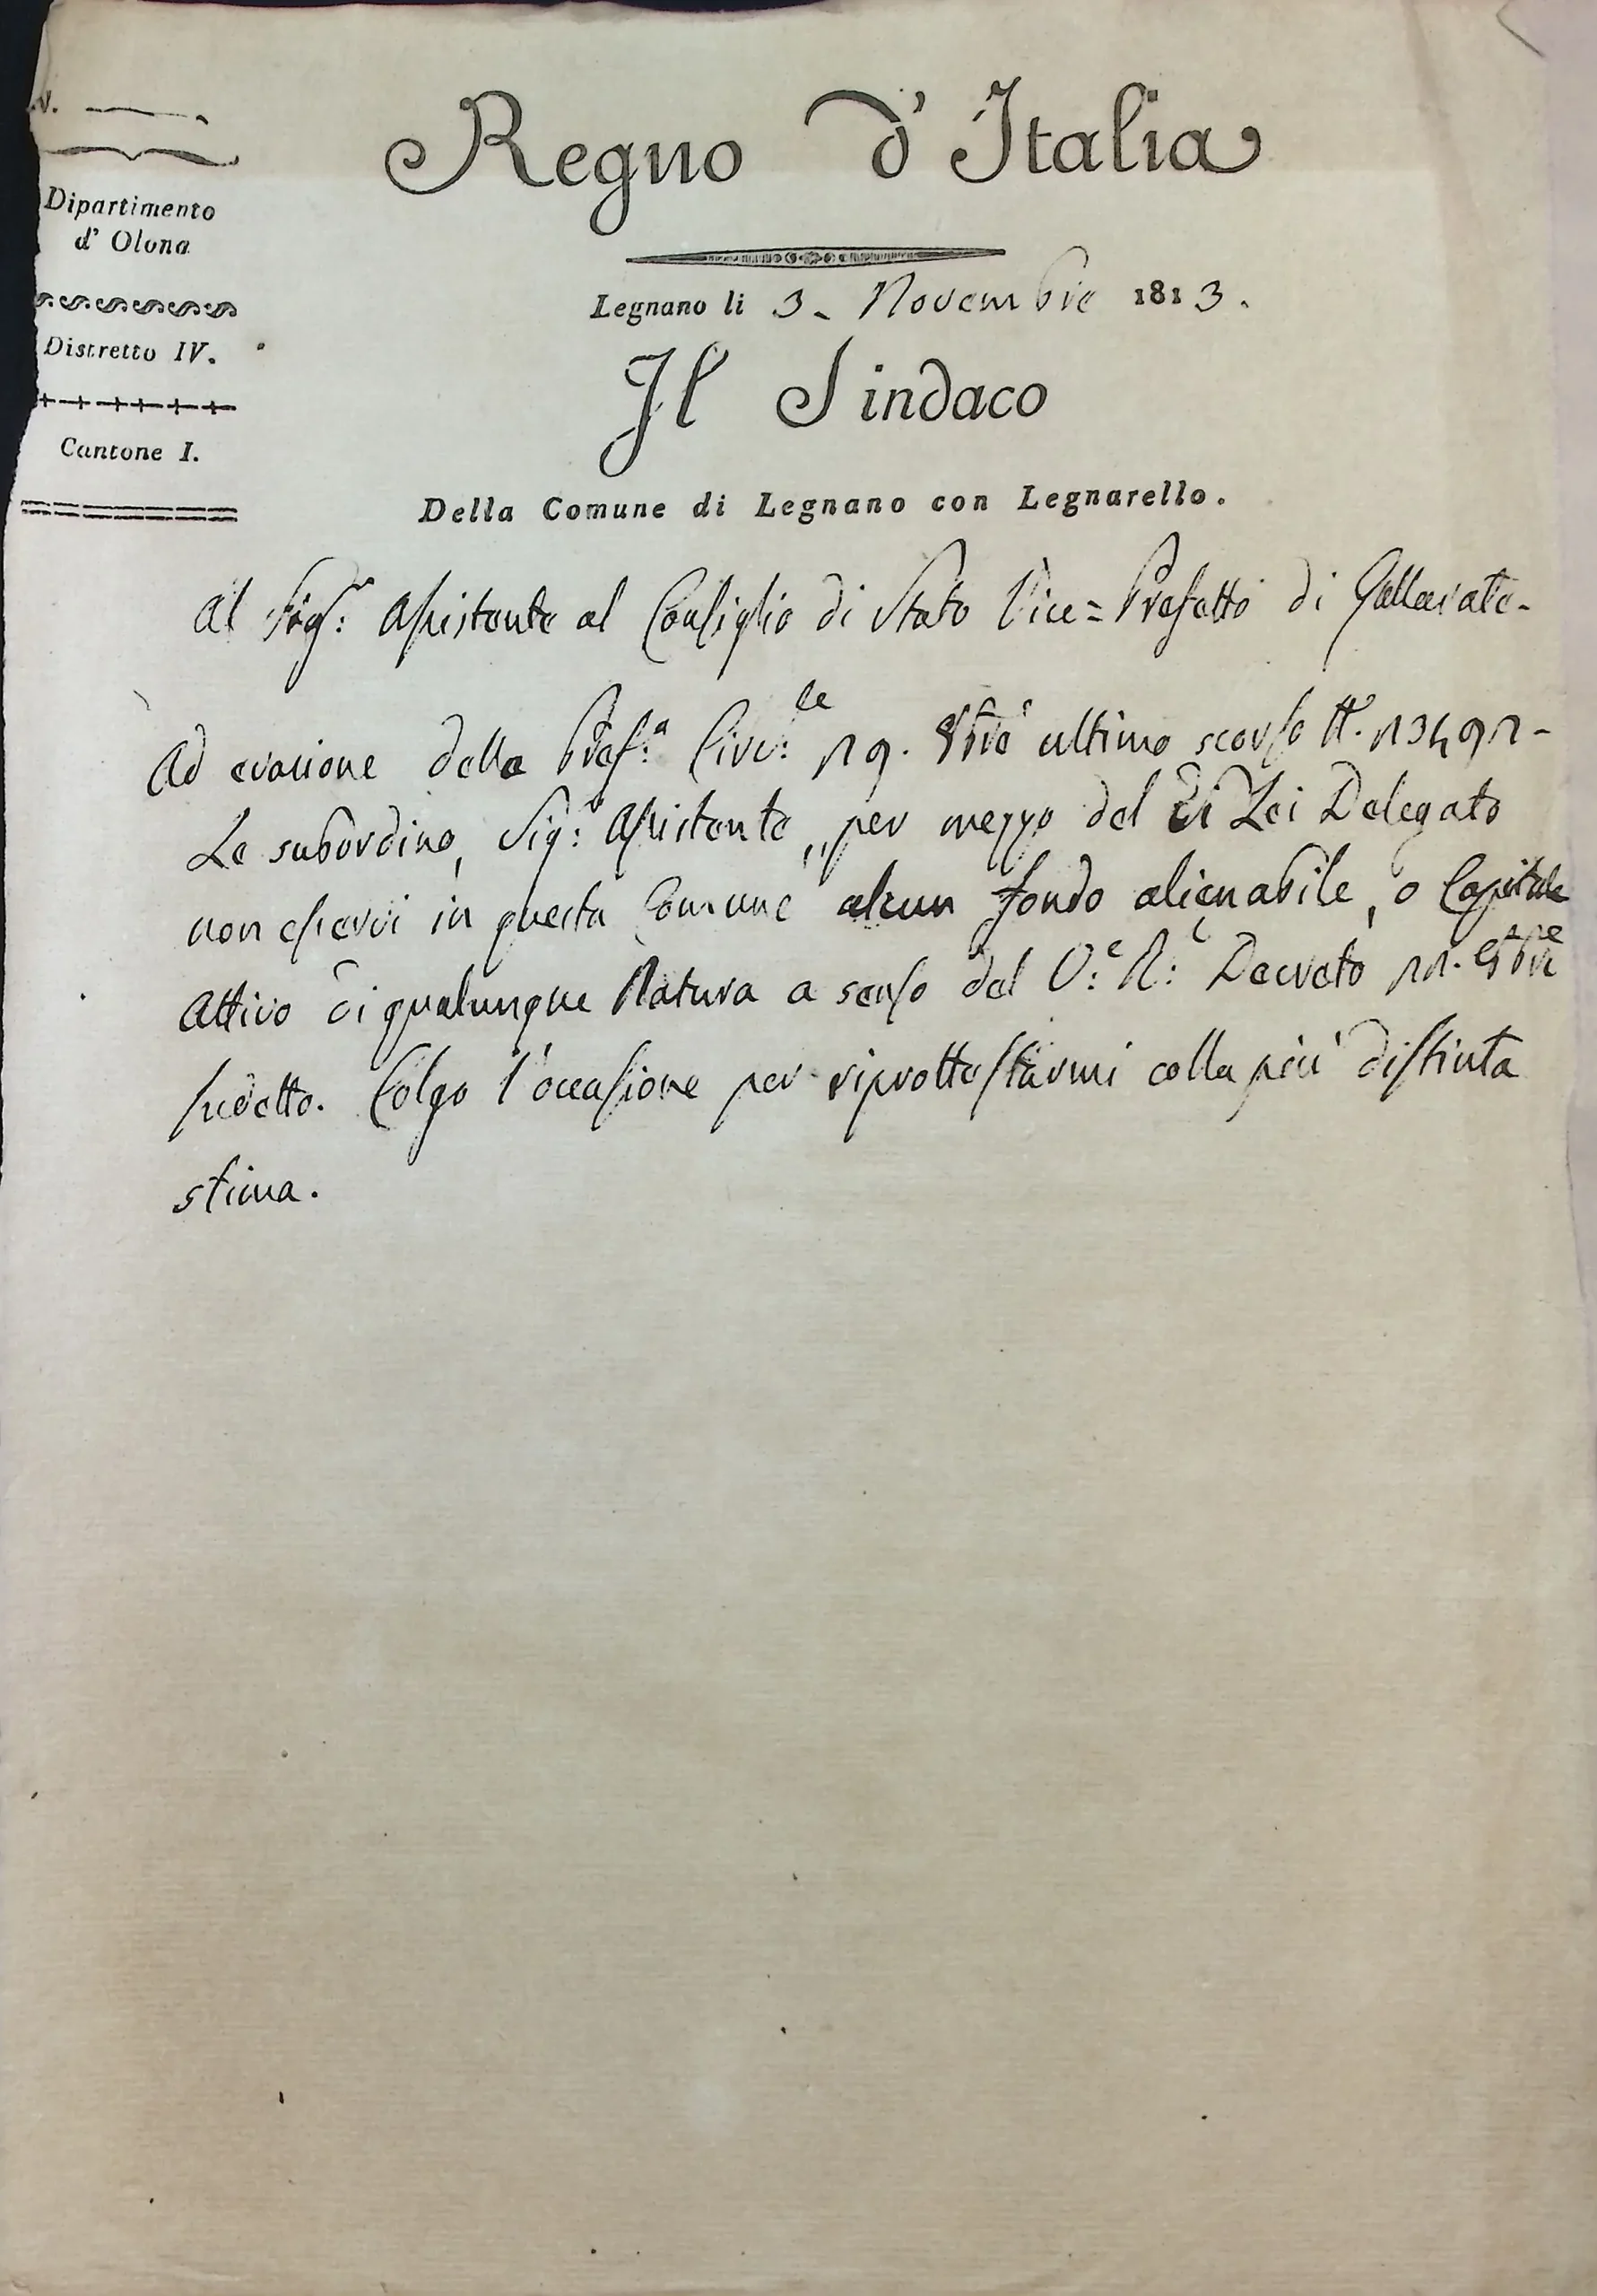 N.
Dipartimento
d' Olona
Distretto IV.
Cantone I.
Regno d' Italia
Legnano li 3. Novembre 1813.
Il Sindaco
Della Comune di Legnano con Legnarello.
Al Sigr: Assistente al Consiglio di Stato Vice=Prefetto di Gallarate-
Ad evasione della Pref:a Circ:le 19. ultimo scorso N. 13491-
Le subordino, Sig:r Assistente, per mezzo del di Lei Delegato
non esservi in questa Comune alcun fondo alienabile, o Capitale
Attivo di qualunque Natura a senso del V:e R:e Decreto 11.
sudetto. Colgo l'occasione per riprottestarmi colla più distinta
stima.